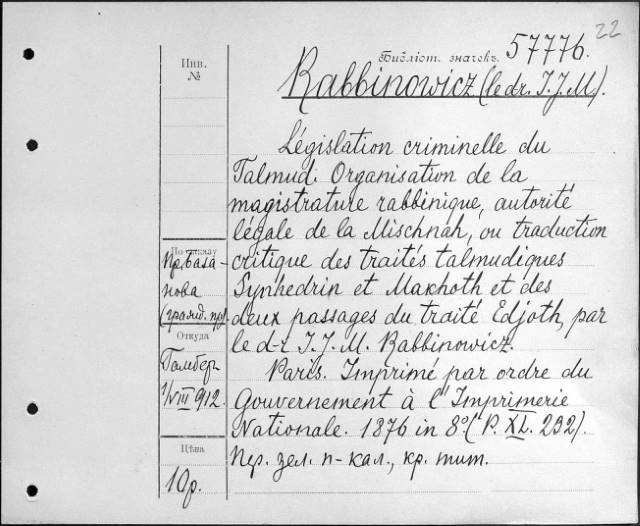 22
Библіот. значекъ 57776.
Инв.
№
Rabbinowicz (le dr. I. J. M.).
Législation criminelle du
Talmud. Organisation de la
magistrature rabbinique, autorité
légale de la Mischnah, ou traduction
critique des traités talmudiques
Synhedrin et Makhoth et des
deux passages du traité Edjoth, par
le d-r I. J. M. Rabbinowicz.
Paris. Imprimé par ordre du
Gouvernement à l'Imprimerie
Nationale. 1876 in 8º. (P. XL. 232).
Пер. зел. п-кал., кр. тит.
По заказу
Пр. База-
нова
(гражд. пр.)
Откуда
Гамбер
1/VIII 912.
Цѣна
10 р.